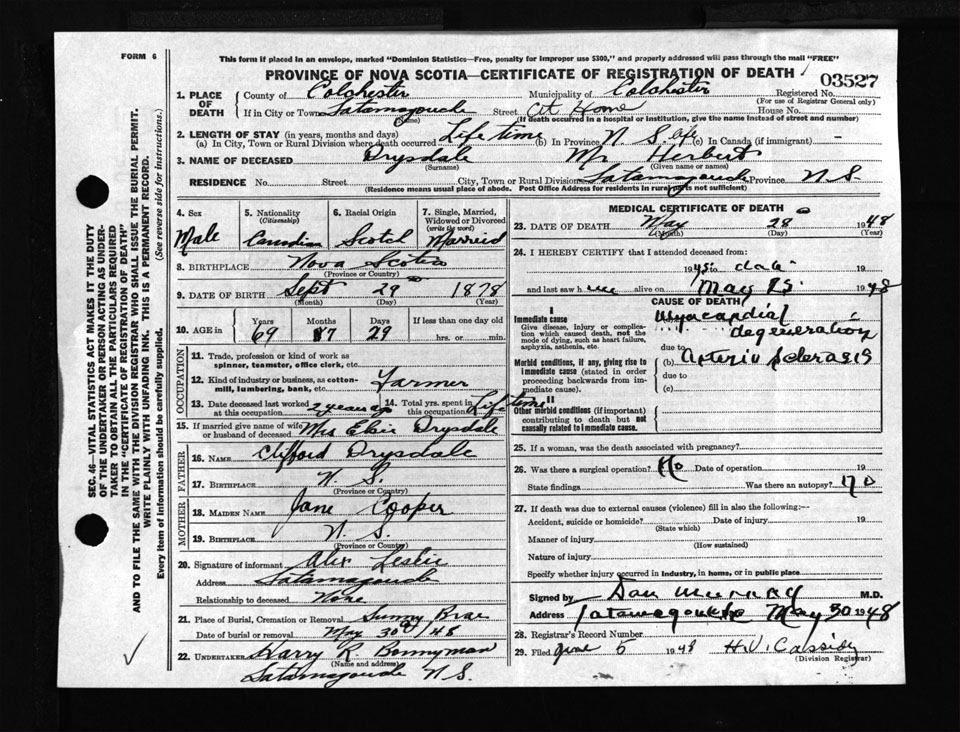 FORM 6
This form if placed in an envelope, marked "Dominion Statistics—Free, penalty for improper use $300," and properly addressed will pass through the mail "FREE"
PROVINCE OF NOVA SCOTIA—CERTIFICATE OF REGISTRATION OF DEATH
03527
1. PLACE OF DEATH
County of Colchester Municipality of Colchester Registered No.
(For use of Registrar General only)
If in City or Town Tatamagouche Street At Home House No.
(Name) (If death occurred in a hospital or institution, give the name instead of street and number)
2. LENGTH OF STAY (in years, months and days)
(a) In City, Town or Rural Division where death occurred Life time (b) In Province N. S. life (c) In Canada (if immigrant)
3. NAME OF DECEASED Drysdale Mr Herbert
(Surname) (Given name or names)
RESIDENCE No. Street City, Town or Rural Division Tatamagouche Province N.S.
(Residence means usual place of abode. Post Office Address for residents in rural parts not sufficient)
4. Sex Male
5. Nationality (Citizenship) Canadian
6. Racial Origin Scotch
7. Single, Married, Widowed or Divorced (write the word) Married
8. BIRTHPLACE Nova Scotia
(Province or Country)
9. DATE OF BIRTH Sept 29 1878
(Month) (Day) (Year)
10. AGE in Years Months Days If less than one day old
69 7 29 hrs. or min.
OCCUPATION
11. Trade, profession or kind of work as spinner, teamster, office clerk, etc.
12. Kind of industry or business, as cotton-mill, lumbering, bank, etc. Farmer
13. Date deceased last worked at this occupation 2 years ago
14. Total yrs. spent in this occupation Life time
15. If married give name of wife or husband of deceased Mrs Elsie Drysdale
FATHER
16. NAME Clifford Drysdale
17. BIRTHPLACE N. S.
(Province or Country)
MOTHER
18. MAIDEN NAME Jane Cooper
19. BIRTHPLACE N. S.
(Province or Country)
20. Signature of informant Alex Leslie
Address Tatamagouche
Relationship to deceased None
21. Place of Burial, Cremation or Removal Sunny Brae
Date of burial or removal May 30 48
22. UNDERTAKER Harry R Bonnyman
(Name and address)
Tatamagouche N S.
MEDICAL CERTIFICATE OF DEATH
23. DATE OF DEATH May 28 1948
(Month) (Day) (Year)
24. I HEREBY CERTIFY that I attended deceased from:
1945 to date 19
and last saw h alive on May 25 1948
CAUSE OF DEATH
I
Immediate cause
Give disease, injury or complication which caused death, not the mode of dying, such as heart failure, asphyxia, asthenia, etc.
Myocardial degeneration
due to
Morbid conditions, if any, giving rise to immediate cause (stated in order proceeding backwards from immediate cause).
(b) Arterio Sclerosis
due to
(c)
II
Other morbid conditions (if important) contributing to death but not causally related to immediate cause.
25. If a woman, was the death associated with pregnancy?
26. Was there a surgical operation? No Date of operation 19
State findings Was there an autopsy? no
27. If death was due to external causes (violence) fill in also the following:—
Accident, suicide or homicide? Date of injury 19
(State which)
Manner of injury
(How sustained)
Nature of injury
Specify whether injury occurred in industry, in home, or in public place
Signed by Dan Murray M.D.
Address Tatamagouche May 30 1948
28. Registrar's Record Number
29. Filed June 5 1948 H.V. Cassidy
(Division Registrar)
SEC. 46—VITAL STATISTICS ACT MAKES IT THE DUTY
OF THE UNDERTAKER OR PERSON ACTING AS UNDERTAKER TO OBTAIN ALL THE PARTICULARS REQUIRED
IN THE "CERTIFICATE OF REGISTRATION OF DEATH"
AND TO FILE THE SAME WITH THE DIVISION REGISTRAR WHO SHALL ISSUE THE BURIAL PERMIT.
WRITE PLAINLY WITH UNFADING INK. THIS IS A PERMANENT RECORD.
Every item of information should be carefully supplied. (See reverse side for instructions.)